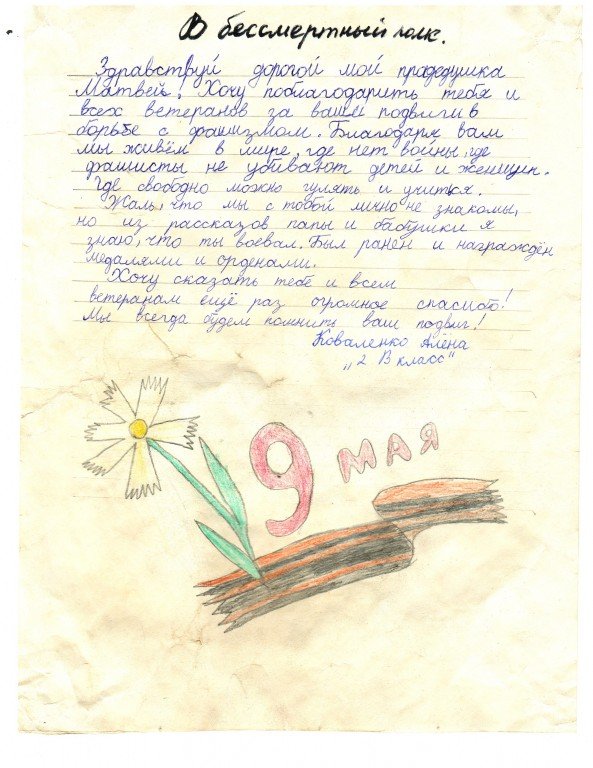 В бессмертный полк.
Здравствуй дорогой мой прадедушка
Матвей! Хочу поблагодарить тебя и
всех ветеранов за ваши подвиги в
борьбе с фашизмом. Благодаря вам
мы живём в мире, где нет войны, где
фашисты не убивают детей и женщин.
Где свободно можно гулять и учится.
Жаль, что мы с тобой лично не знакомы,
но из рассказов папы и бабушки я
знаю, что ты воевал. Был ранен и награждён
медалями и орденами.
Хочу сказать тебе и всем
ветеранам ещё раз огромное спасибо!
Мы всегда будем помнить ваш подвиг!
Коваленко Алёна
„2 В класс"
9 МАЯ